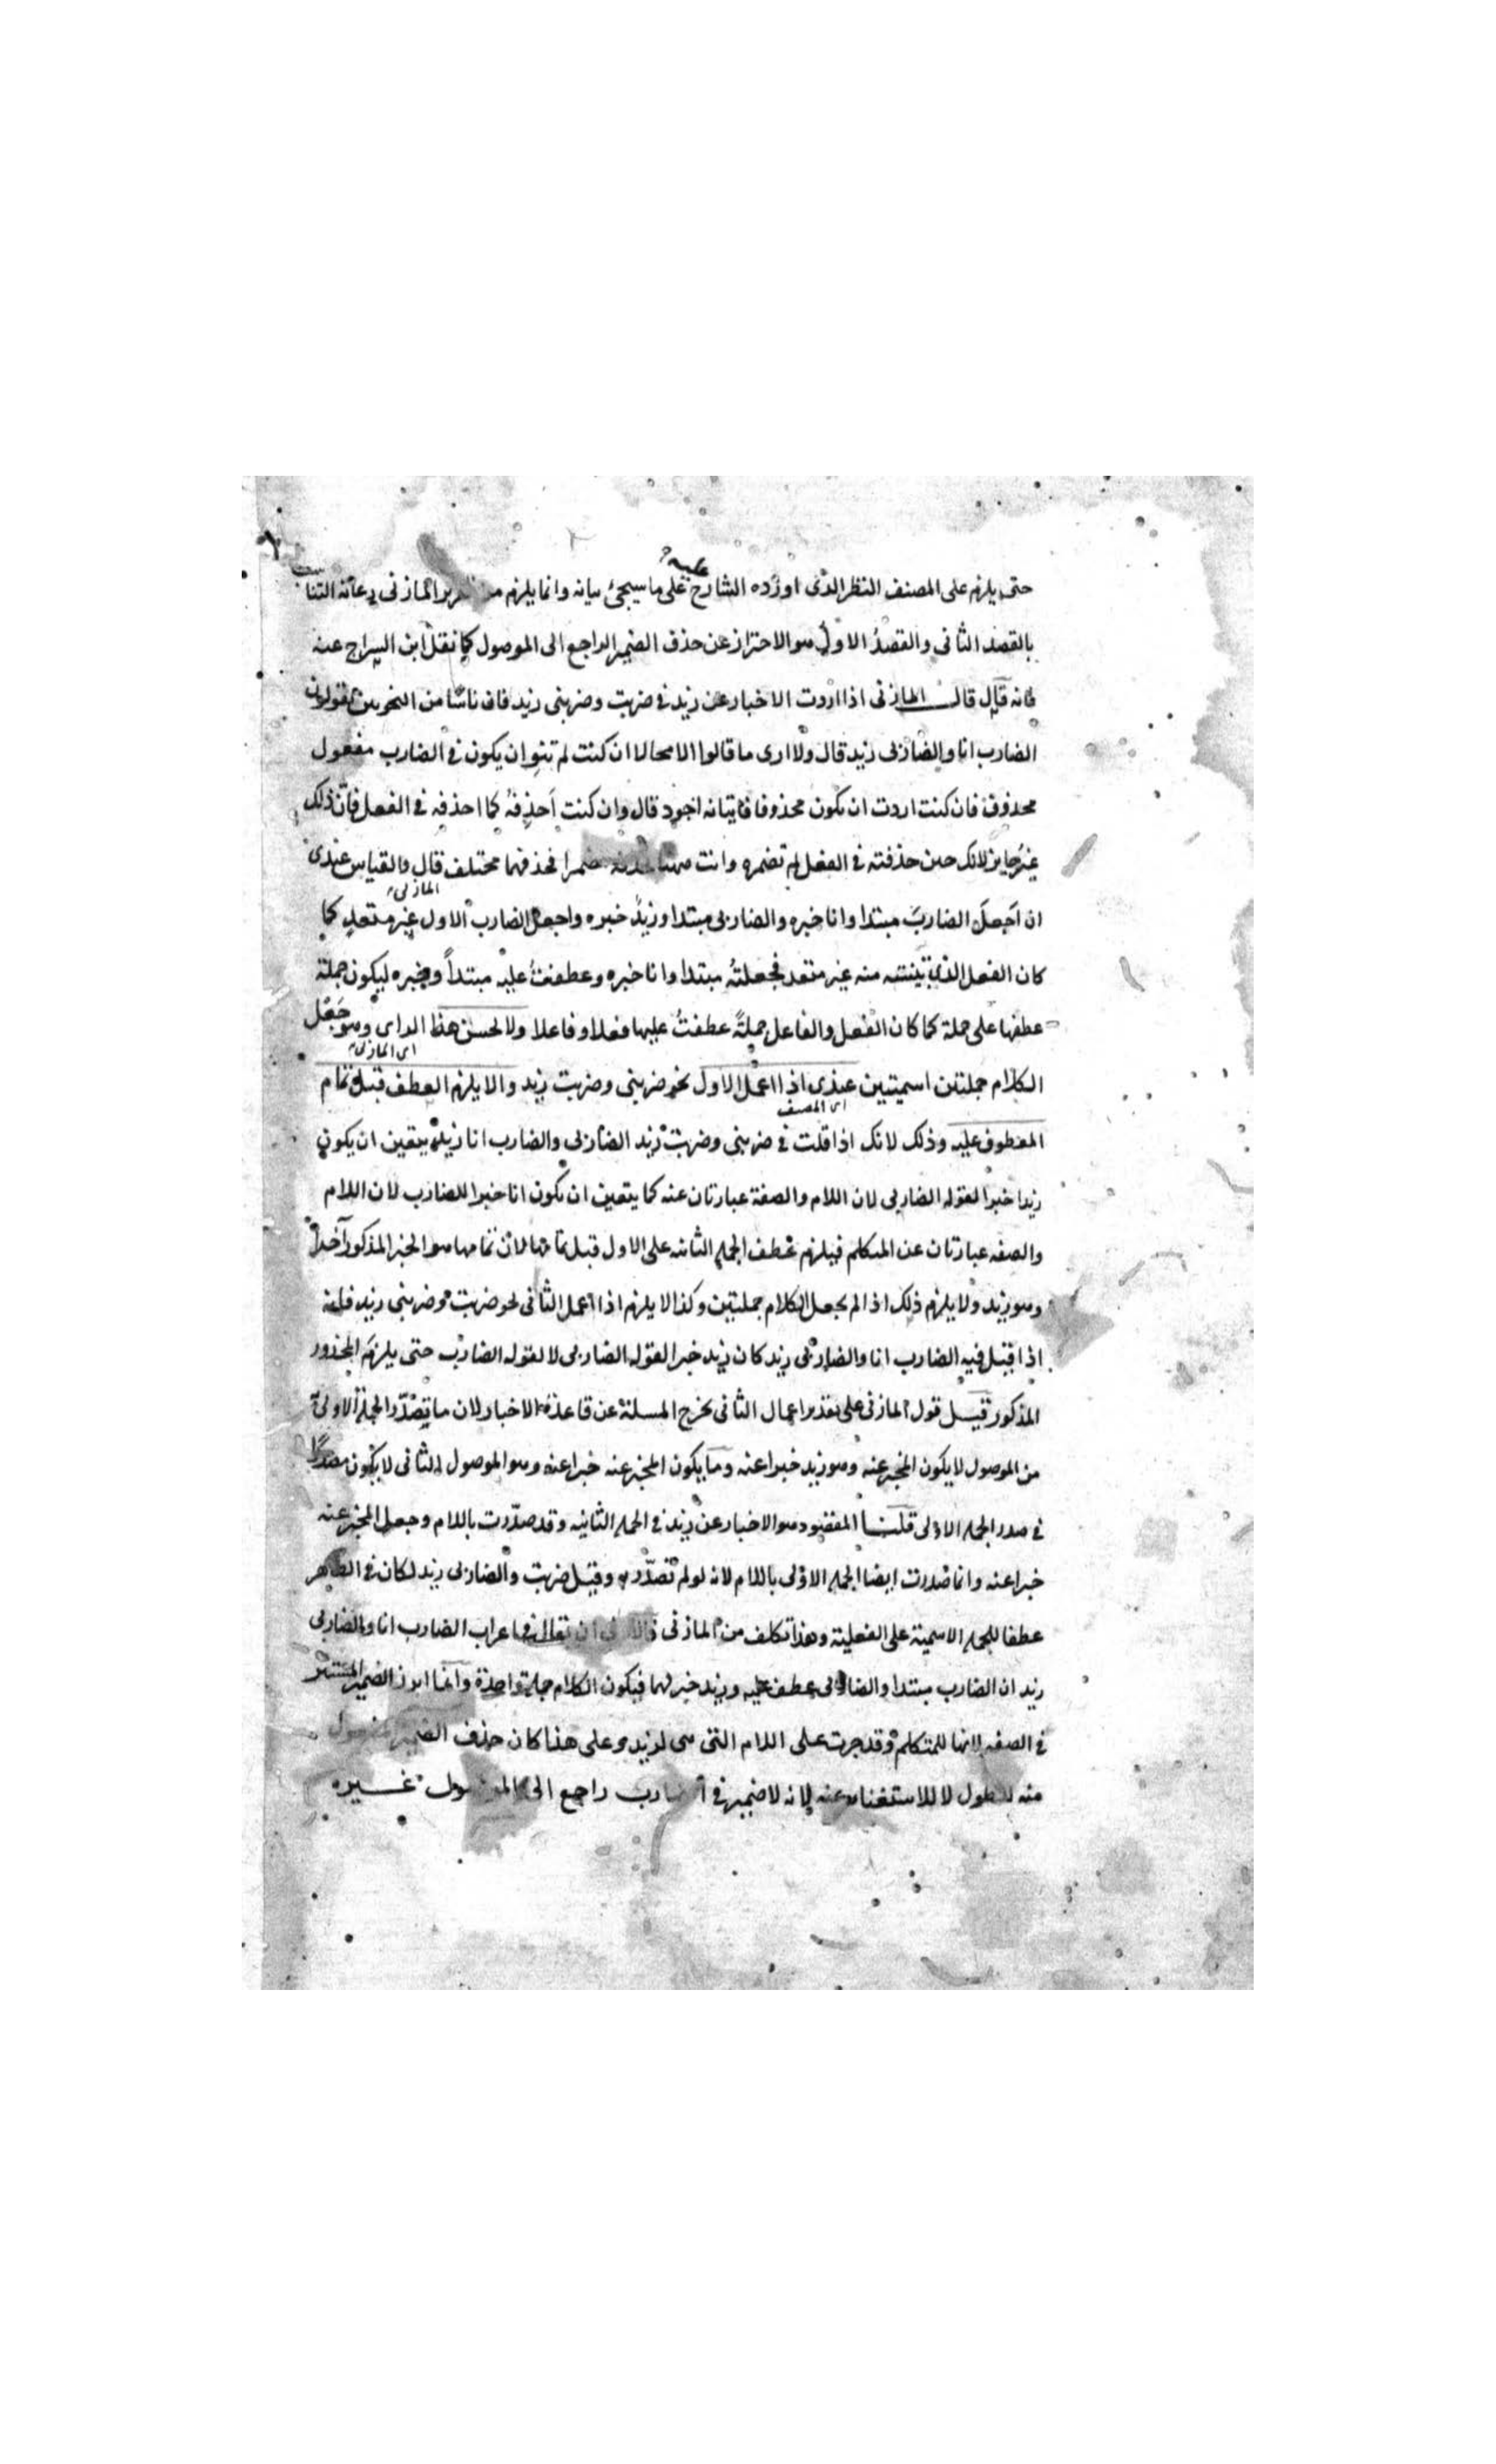 عليه
حتى يلزم على المصنف النظر الذى اورده الشارح على ما سيجئ بيانه وانما يلزم من المازنى رعاية التناسب
بالقصد الثانى والقصد الاول هو الاحتراز عن حذف الضمير الراجع الى الموصول كما نقل ابن السراج عنه
فانه قال قال المازنى اذا اردت الاخبار عن زيد فى ضربت وضربنى زيد فان ناسا من النحويين يقولون
الضارب انا والضاربى زيد قال ولا ارى ما قالوا الا محالا ان كنت لم تنو ان يكون فى الضارب مفعول
محذوف فان كنت اردت ان يكون محذوفا فاتيانه اجود قال وان كنت احذفه كما احذفه فى الفعل فان ذلك
غير جايز لانك حين حذفته فى الفعل لم تضمره وانت ههنا مضمرا فحذفهما مختلف قال والقياس عندى
المازنى
ان اجعل الضارب مبتدا وانا خبره والضاربى مبتدا وزيد خبره واجعل الضارب الاول غير متعد كما
كان الفعل الذى بنيته منه غير متعد فجعلته مبتدا وانا خبره وعطفت عليه مبتدأ وخبره ليكون جملة
عطفها على جملة كما كان الفعل والفاعل جملة عطفت عليها فعلا وفاعلا ولا يحسن هذا الراى وهو جعل
اى المازنى
الكلام جملتين اسميتين عندى اذا اعمل الاول نحو ضربنى وضربت زيد والا يلزم العطف قبل تمام
اى المصنف
المعطوف عليه وذلك لانك اذا قلت فى ضربنى وضربت زيد الضاربى والضارب انا زيد يتعين ان يكون
زيدا خبرا لقوله الضاربى لان اللام والصفة عبارتان عنه كما يتعين ان يكون انا خبرا للضارب لان اللام
والصفه عبارتان عن المتكلم فيلزم عطف الجمله الثانيه على الاول قبل تمامها لان تمامها هو الخبر المذكور آخرا
وهو زيد ولا يلزم ذلك اذا لم يجعل الكلام جملتين وكذا لا يلزم اذا اعمل الثانى نحو ضربت وضربنى زيد فانه
اذا قيل فيه الضارب انا والضاربى زيد كان زيد خبرا لقوله الضاربى لا لقوله الضارب حتى يلزم المحذور
المذكور قيل قول المازنى على تقدير اعمال الثانى يخرج المسئلة عن قاعدة الاخبار لان ما تصدر الجملة الاولى
من الموصول لا يكون المخبر عنه وهو زيد خبرا عنه وما يكون المخبر عنه خبرا عنه وهو الموصول الثانى لا يكون مصدرا
فى صدر الجمله الاولى قلنا المقصود هو الاخبار عن زيد فى الجمله الثانيه وقد صدرت باللام وجعل المخبر عنه
خبرا عنه وانما صدرت ايضا الجمله الاولى باللام لانه لو لم تصدر به وقيل ضربت والضاربى زيد لكان فى الظاهر
عطفا للجمله الاسمية على الفعلية وهذا تكلف من المازنى ان يقال فى اعراب الضارب انا والضاربى
زيد ان الضارب مبتدا والضاربى عطف عليه وزيد خبر لهما فيكون الكلام جملة واحدة وانما ابرز الضمير المستتر
فى الصفه لانها للمتكلم وقد جرت على اللام التى هى لزيد وعلى هذا كان حذف الضمير
منه للطول لا للاستغناء عنه لانه لا ضمير فى راجع الى غيره